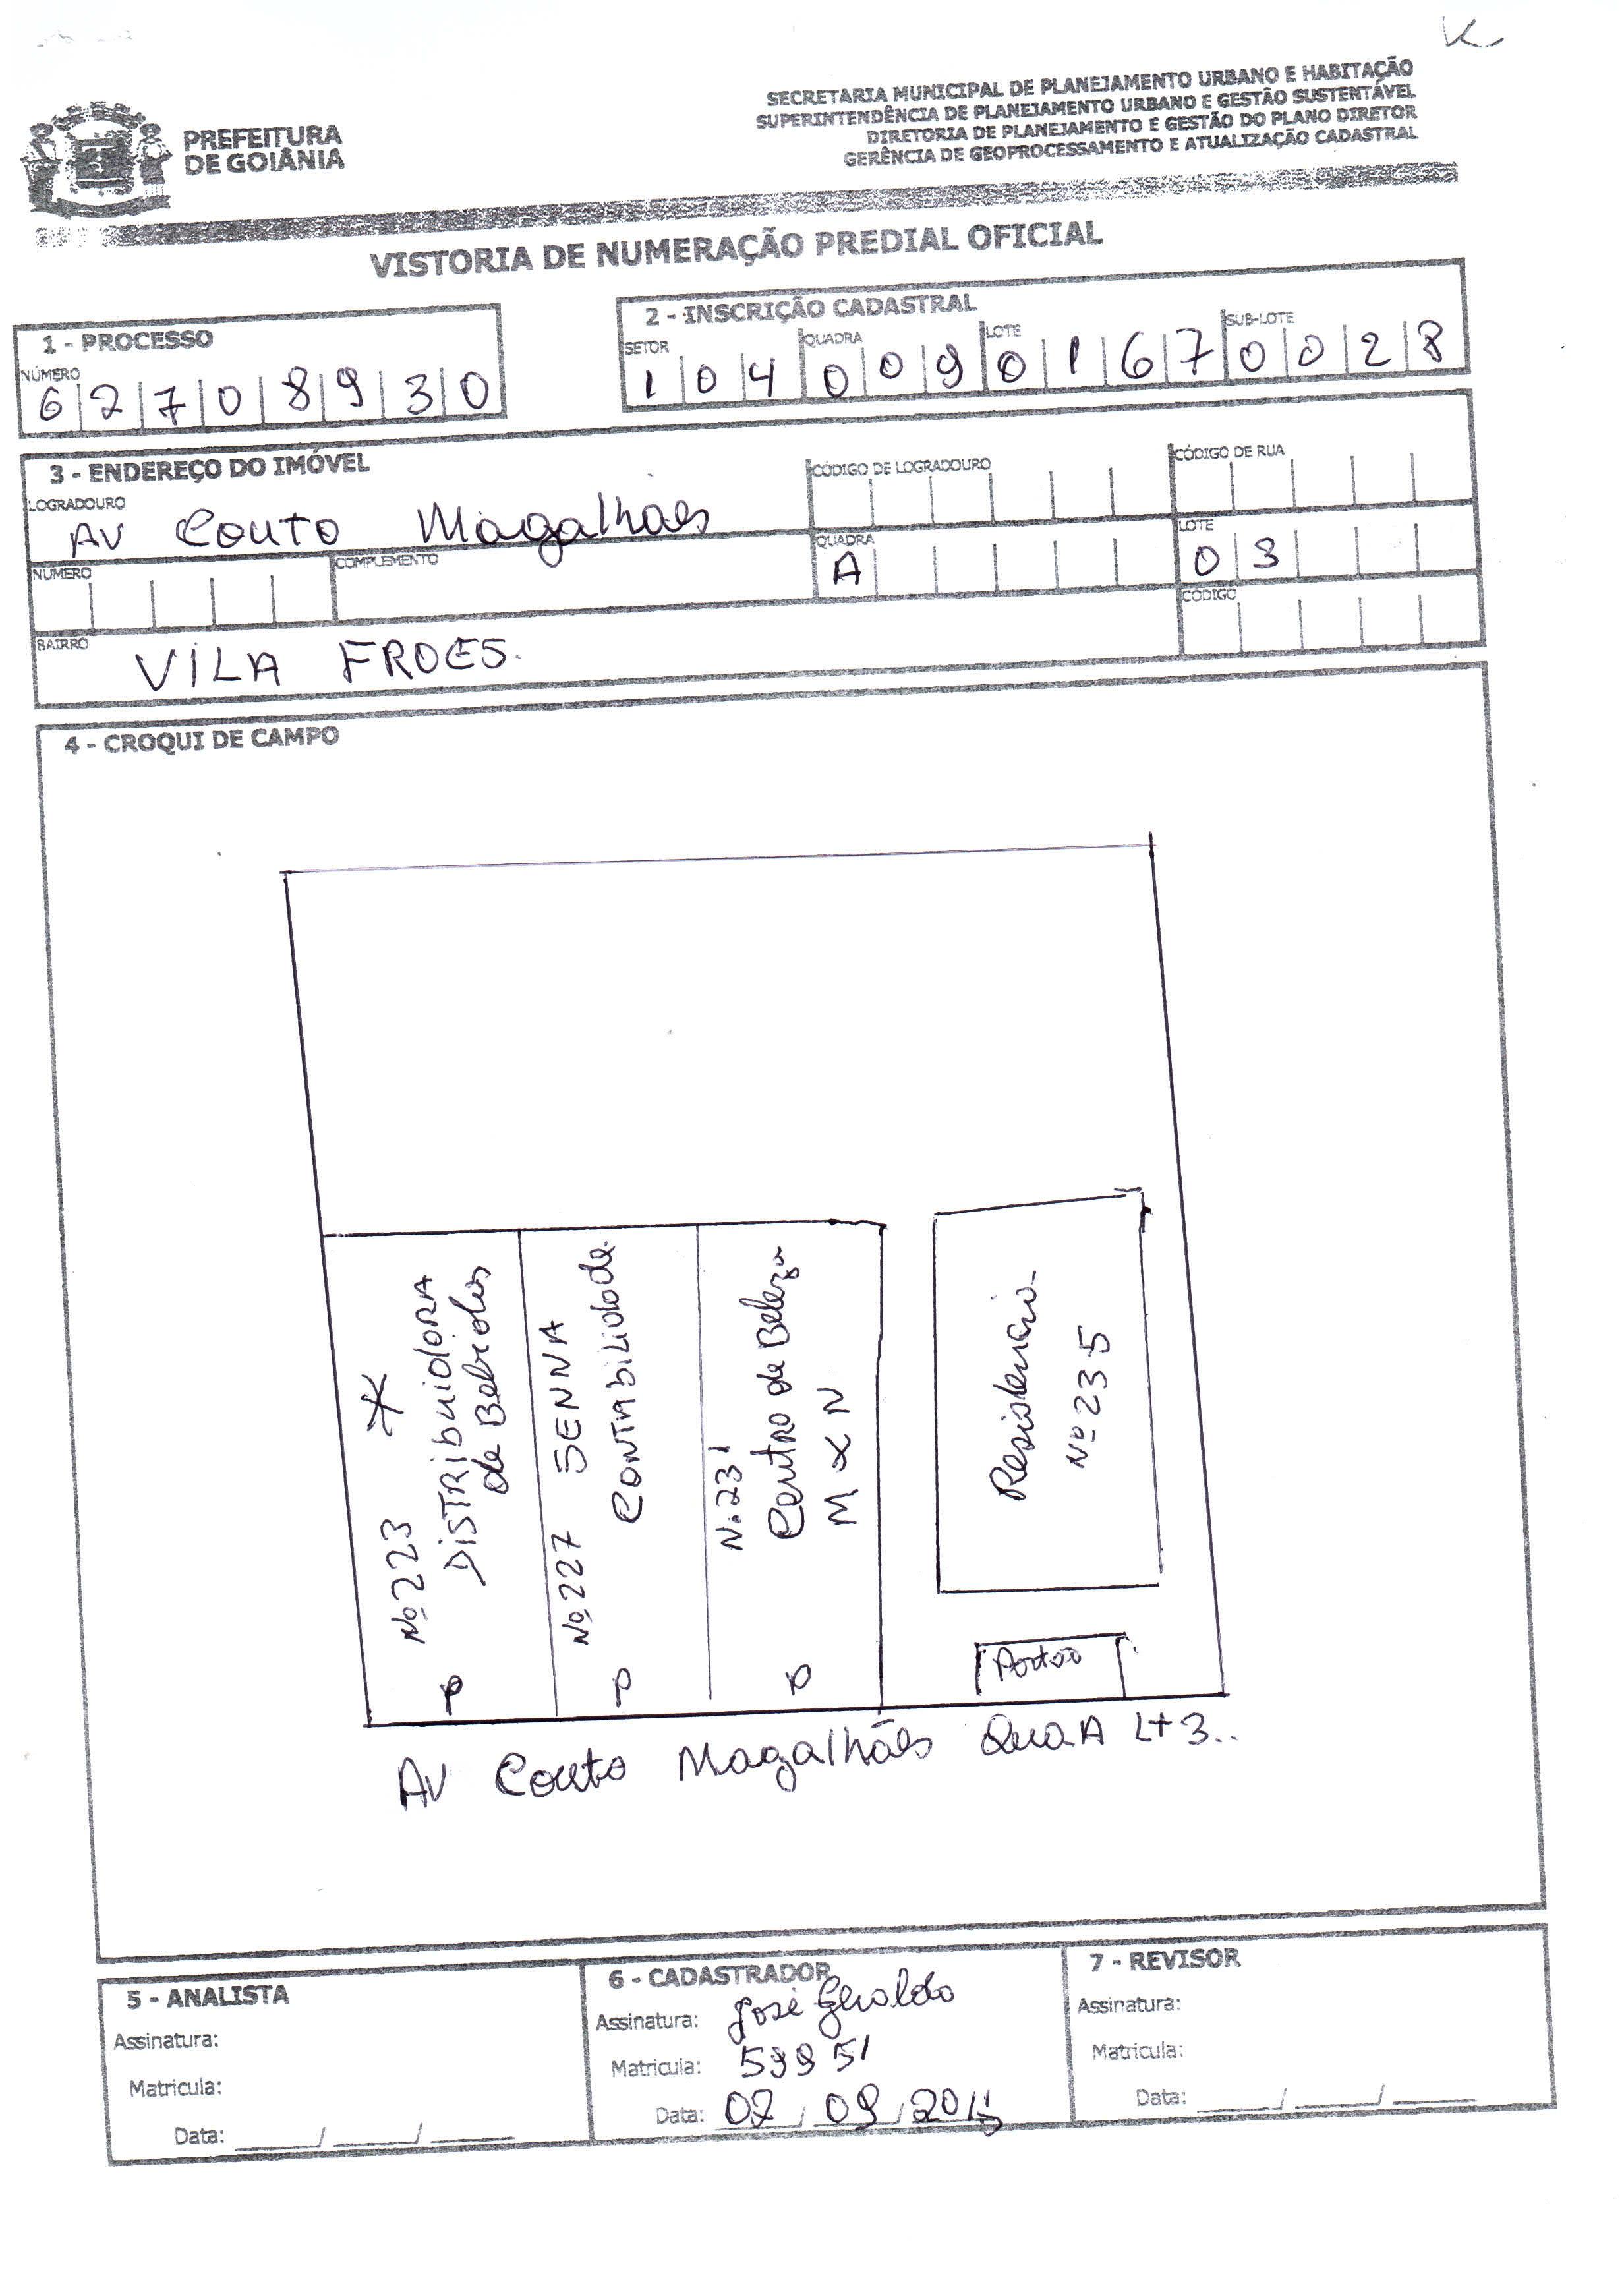 SECRETARIA MUNICIPAL DE PLANEJAMENTO URBANO E HABITAÇÃO
SUPERINTENDÊNCIA DE PLANEJAMENTO URBANO E GESTÃO SUSTENTÁVEL
DIRETORIA DE PLANEJAMENTO E GESTÃO DO PLANO DIRETOR
GERÊNCIA DE GEOPROCESSAMENTO E ATUALIZAÇÃO CADASTRAL
PREFEITURA
DE GOIÂNIA
VISTORIA DE NUMERAÇÃO PREDIAL OFICIAL
1 - PROCESSO
NÚMERO
6 2 7 0 8 9 3 0
2 - INSCRIÇÃO CADASTRAL
SETOR QUADRA LOTE SUB-LOTE
1 0 4 0 0 9 0 1 6 7 0 0 2 8
3 - ENDEREÇO DO IMÓVEL
LOGRADOURO CÓDIGO DE LOGRADOURO CÓDIGO DE RUA
AV Couto Magalhães
NÚMERO COMPLEMENTO QUADRA LOTE
A 03
BAIRRO CÓDIGO
VILA FROES.
4 - CROQUI DE CAMPO
Nº 223
DISTRIbuidORA
de Bebidas
Nº 227 SENNA
CONTAbilidade
N. 231
Centro de Beleza
M & N
Residencia
Nº 235
Portão
AV Couto Magalhães Qua A Lt 3..
5 - ANALISTA
Assinatura:
Matricula:
Data: ____/____/____
6 - CADASTRADOR
Assinatura: José Geraldo
Matricula: 59951
Data: 02/09/2015
7 - REVISOR
Assinatura:
Matricula:
Data: ____/____/____